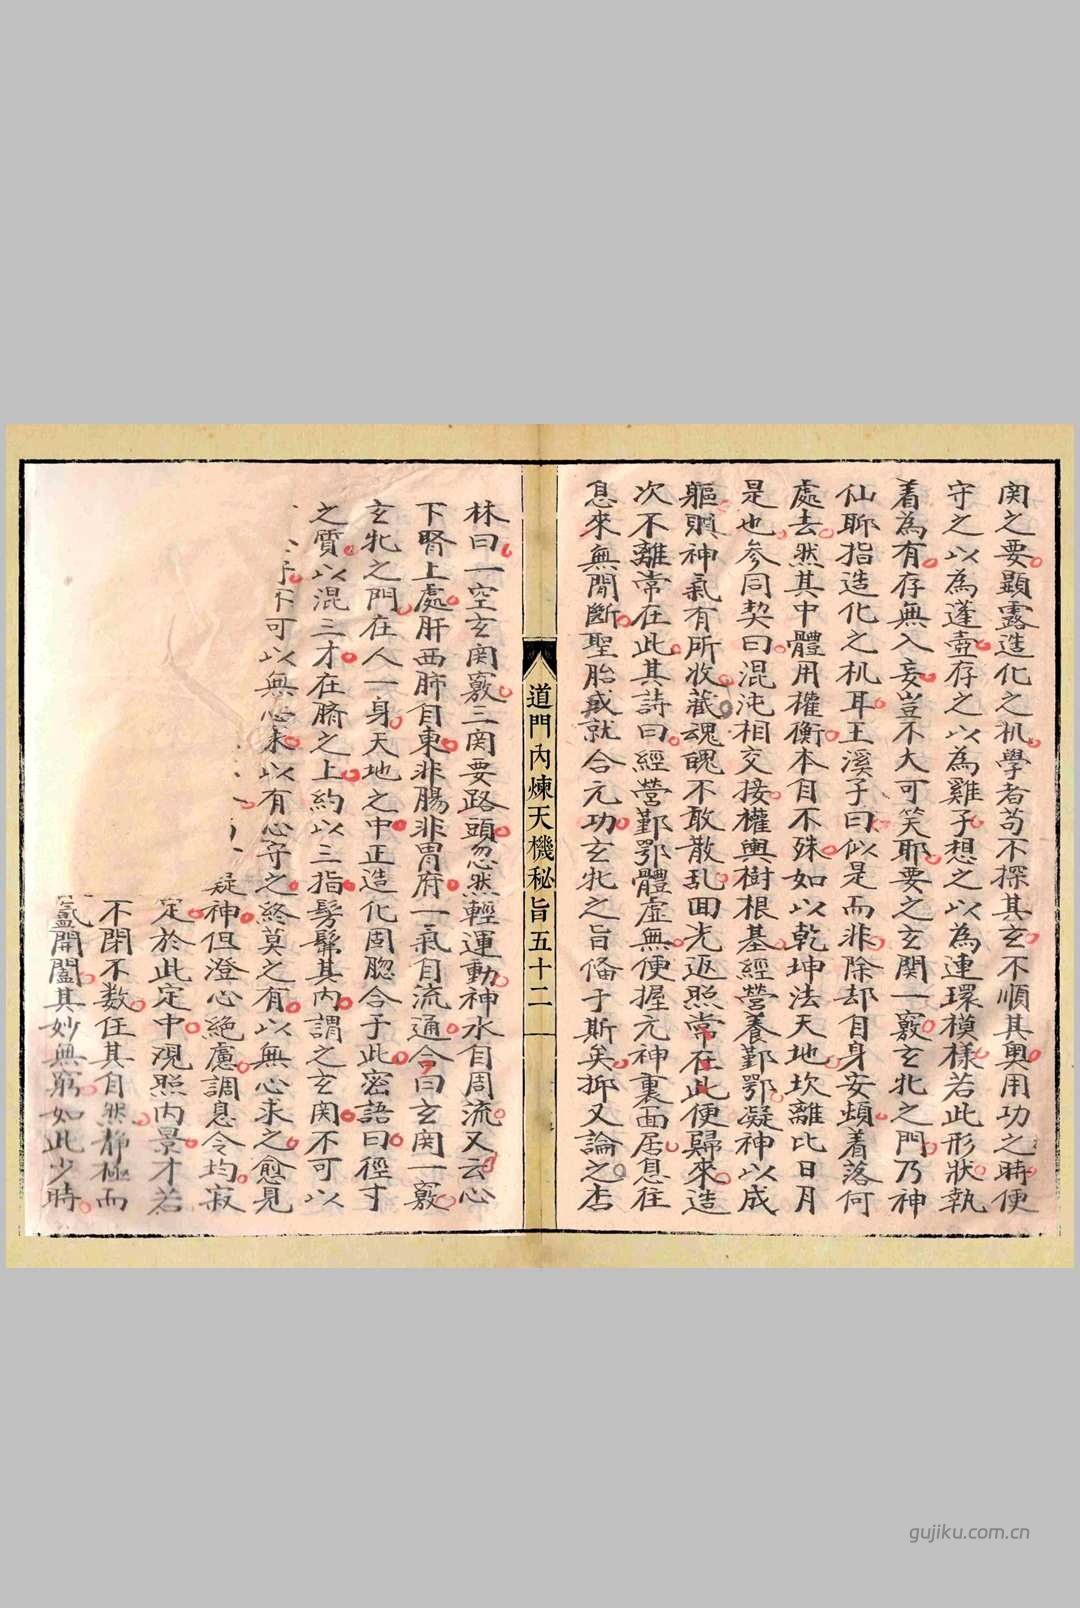 関之要顯露造化之机學者苟不探其玄不順其奥用功之時便
守之以為蓬壺存之以為雞子想之以為連環模樣若此形狀執
着為有存無入妄豈不大可笑耶要之玄関一竅玄牝之門乃神
仙聊指造化之机耳王溪子曰似是而非除却自身安頓着落何
處去然其中體用權衡本自不殊如以乾坤法天地坎離比日月
是也参同契曰混沌相交接權輿樹根基經營養鄞鄂凝神以成
軀則神氣有所收藏魂魄不敢散乱回光返照常在此便歸來造
次不離常在此其詩曰經營鄞鄂體虚無便握元神裏面居息往
息來無閒斷聖胎成就合元功玄牝之旨俻于斯矣抑又論之杏
道門內煉天機秘旨五十二
林曰一空玄関竅三関要路頭忽然輕運動神水自周流又云心
下腎上處肝西肺自東非腸非胃府一氣自流通今曰玄関一竅
玄牝之門在人一身天地之中正造化固脗合于此密語曰徑寸
之質以混三才在臍之上約以三指髣髴其内謂之玄関不可以
予不可以無心求以有心守之終莫之有以無心求之愈見
凝神但澄心絶慮調息令均寂
定於此定中觀照内景才若
不閉不数任其自然静極而
闔其妙無窮如此少時
gujiku.com.cn